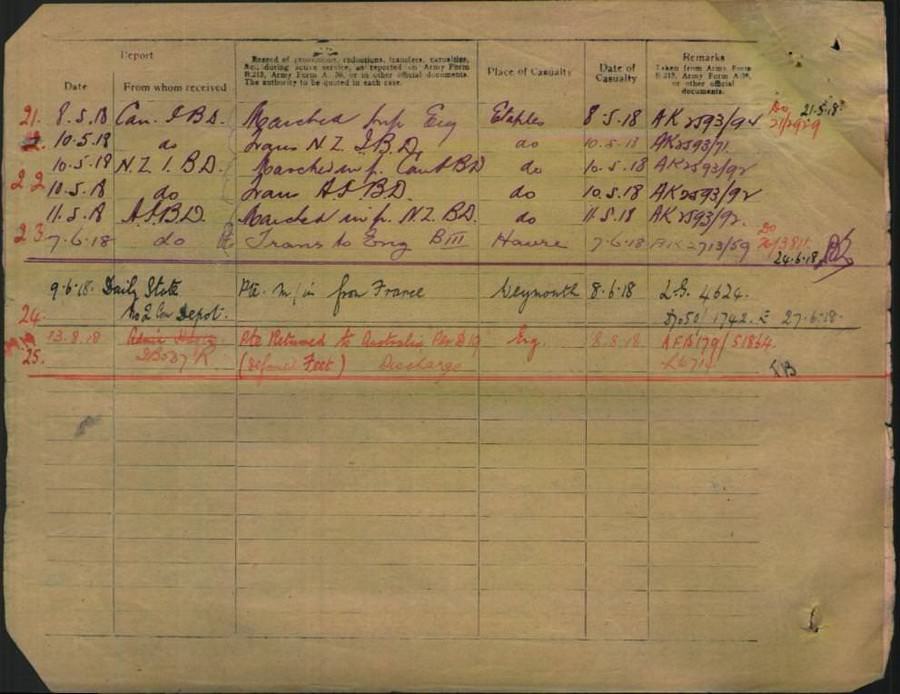 Report
Date
From whom received
Record of promotions, reductions, transfers, casualties, &c., during active service, as reported on Army Form B.213, Army Form A.36, or in other official documents. The authority to be quoted in each case.
Place of Casualty
Date of Casualty
Remarks
Taken from Army Form B.213, Army Form A.36, or other official documents.
21. 8.5.18 Can. I B D. Marched in fr Eng Etaples 8 5.18 AK 2593/94 Do 21/2929 21.5.18
10.5.18 do Trans N.Z. I.B.D. do 10.5.18 AK 2593/71
22 10.5.18 N.Z I.B.D. Marched in fr. Cant BD do 10.5.18 AK 2593/92
10.5.18 do Trans A.I.B.D. do 10.5.18 AK 2593/92
11.5.18 A.I.B.D. Marched in fr. N.Z. B.D. do 11.5.18 AK 2593/92.
23. 7.6.18 do Trans to Eng B III Havre 7.6.18 AK 2713/59 Do 24.6.18
9.6.18. Daily State Pte. m/in from France Weymouth 8.6.18 L.G. 4624.
24. No 2 Com Depot. 1742. E 27.6.18.
13.8.18 Admin Hdqrs Pte Returned to Australia Per Eng. 8.8.18 51864
25. (Deformed Feet) Discharge